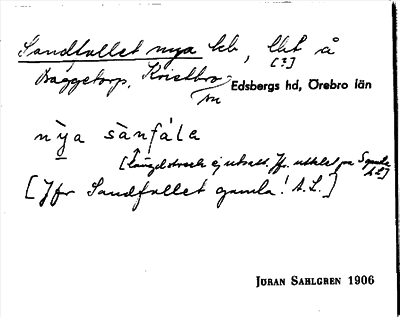 Sandfallet nya lht å
[?]
Baggetorp, Kristbro-
sn Edsbergs hd, Örebro län
nỳa sànfàla
[längdstreck ej utsatt. Jfr. uttalet på Gamla
A.L.]
[Jfr Sandfallet gamla! A.L.]
JÖRAN SAHLGREN 1906